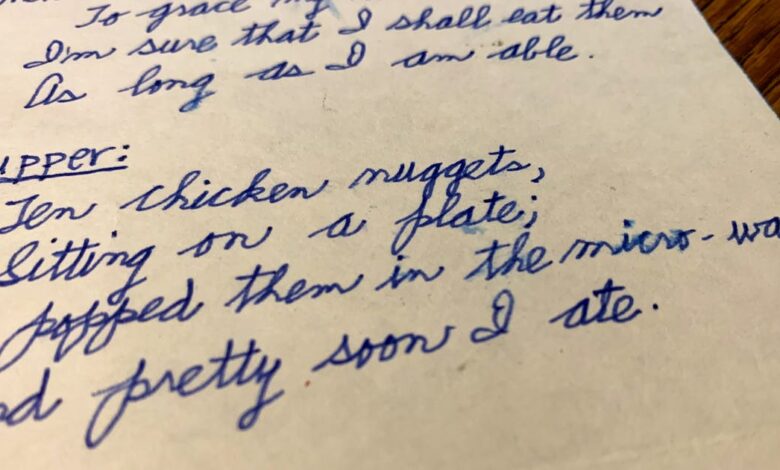 To grace my
I'm sure that I shall eat them
As long as I am able.
upper:
Ten chicken nuggets,
Sitting on a plate;
popped them in the micro-wa
nd pretty soon I ate.